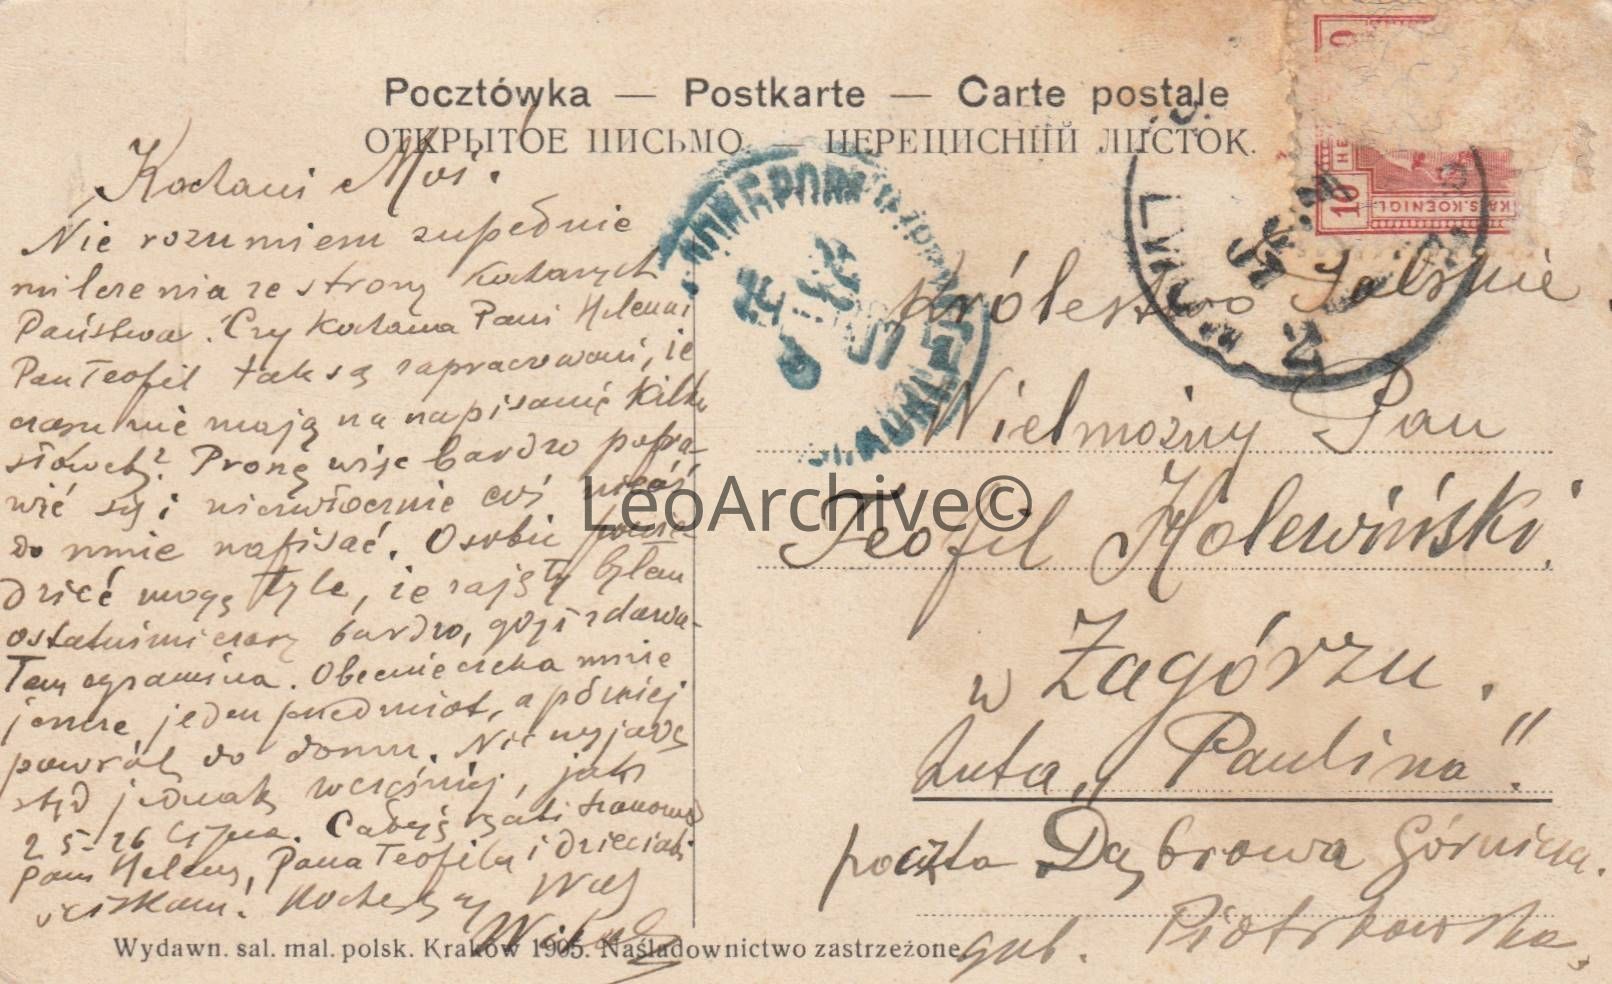 Pocztówka — Postkarte — Carte postale
ОТКРЫТОЕ ПИСЬМО. — ПЕРЕПИСНИЙ ЛИСТОК.
Kochani Moi.
Nie rozumiem zupełnie
milczenia ze strony Kochanych
Państwa. Czy Kochana Pani Helena i
Pan Teofil tak są zapracowani, że
czasu nie mają na napisanie kilku
słówek? Proszę więc bardzo popra-
wić się i niezwłocznie coś
do mnie napisać. Osobie powie-
dzieć mogę tyle, że zajęty byłem
ostatnimi czasy bardzo, gdyż zdawa-
łem egzamina. Obecnie czeka mnie
jeszcze jeden przedmiot, a później
powrót do domu. Nie wyjadę
stąd jednak wcześniej, jak
25-26 lipca. Całuję rączki Szanownej
Pani Heleny, Pana Teofila i dzieciaki
ściskam. Kochający Was
Królestwo Polskie.
Wielmożny Pan
Teofil Holewiński.
w Zagórzu.
huta „Paulina".
poczta Dąbrowa Górnicza.
gub. Piotrkowska.
Wydawn. sal. mal. polsk. Kraków 1905. Naśladownictwo zastrzeżone.
10
KAIS. KOENIGL.
LeoArchive©